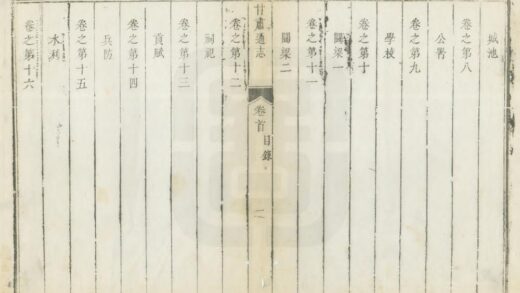 城池
卷之第八
公署
卷之第九
學校
卷之第十
關梁一
卷之第十一
關梁二
甘肅通志
卷首
目錄
二
卷之第十二
祠祀
卷之第十三
貢賦
卷之第十四
兵防
卷之第十五
水利
卷之第十六